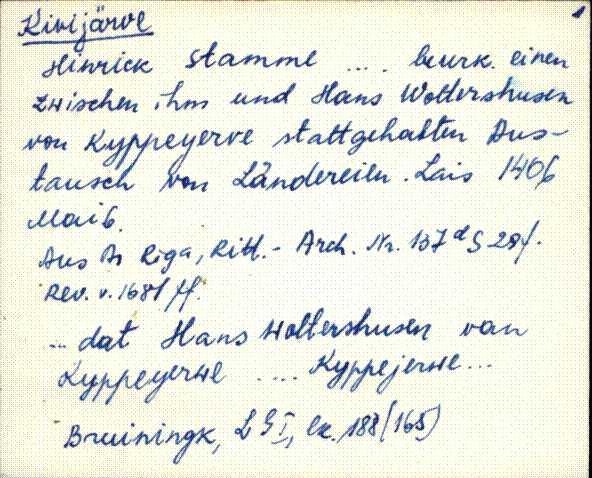 1
Kivijärve
Hinrick Stamme .... beurk. einen
zwischen ihm und Hans Woltershusen
von Kyppeyerve stattgehabten Aus-
tausch von Ländereien. Lais 1406
Mai 6.
Aus Riga, Ritt.- Arch. Nr. 137 d S
Rev. v. 1681 ff.
... dat Hans Woltershusen van
Kyppeyerwe .... Kyppejerwe...
Bruiningk, LG I, lk. 188 (165)